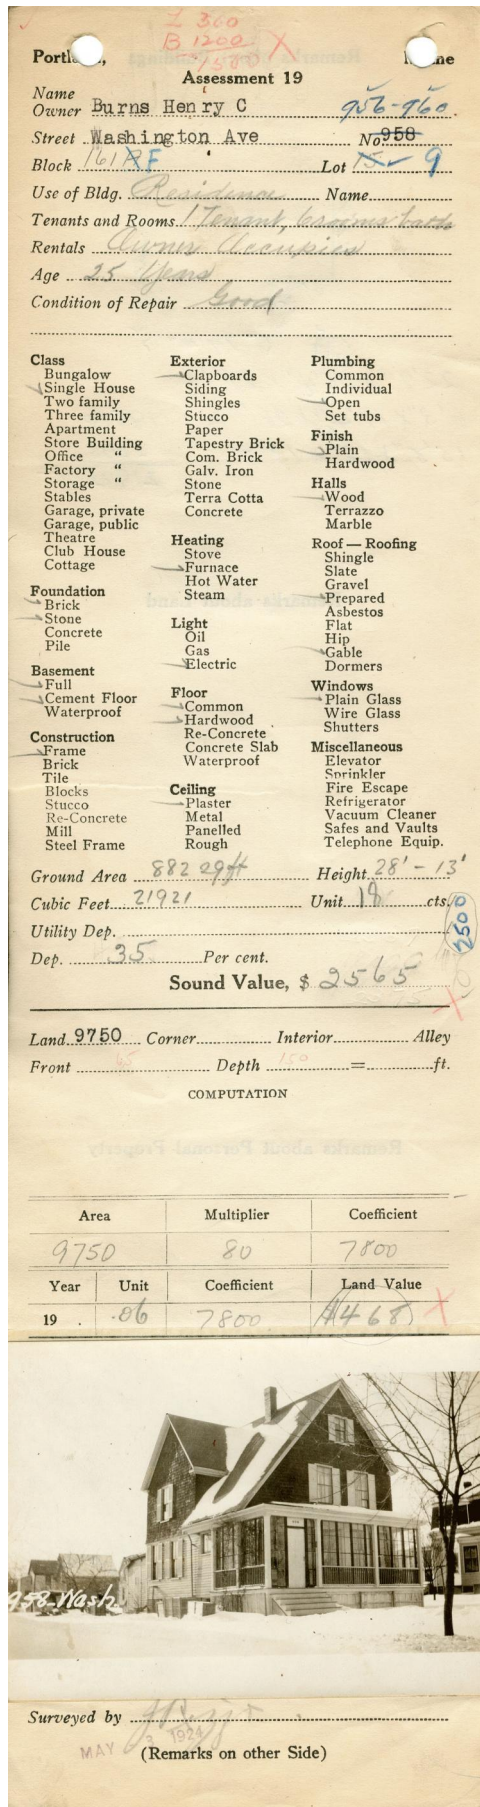 L 360
B 1200 X
1560
Portland, Maine
Assessment 19
Name
Owner Burns Henry C 956-960
Street Washington Ave No. 958
Block 161 F Lot 15 9
Use of Bldg. Residence Name
Tenants and Rooms 1 Tenant, 6 rooms bath
Rentals Owner Occupied
Age 25 Years
Condition of Repair Good
Class
Bungalow
Single House
Two family
Three family
Apartment
Store Building
Office "
Factory "
Storage "
Stables
Garage, private
Garage, public
Theatre
Club House
Cottage
Foundation
Brick
Stone
Concrete
Pile
Basement
Full
Cement Floor
Waterproof
Construction
Frame
Brick
Tile
Blocks
Stucco
Re-Concrete
Mill
Steel Frame
Exterior
Clapboards
Siding
Shingles
Stucco
Paper
Tapestry Brick
Com. Brick
Galv. Iron
Stone
Terra Cotta
Concrete
Heating
Stove
Furnace
Hot Water
Steam
Light
Oil
Gas
Electric
Floor
Common
Hardwood
Re-Concrete
Concrete Slab
Waterproof
Ceiling
Plaster
Metal
Panelled
Rough
Plumbing
Common
Individual
Open
Set tubs
Finish
Plain
Hardwood
Halls
Wood
Terrazzo
Marble
Roof — Roofing
Shingle
Slate
Gravel
Prepared
Asbestos
Flat
Hip
Gable
Dormers
Windows
Plain Glass
Wire Glass
Shutters
Miscellaneous
Elevator
Sprinkler
Fire Escape
Refrigerator
Vacuum Cleaner
Safes and Vaults
Telephone Equip.
Ground Area 882 sq ft Height 28' - 13'
Cubic Feet 21921 Unit 18 cts.
2500
Utility Dep.
Dep. 35 Per cent.
Sound Value, $ 2565
X
Land 9750 Corner Interior Alley
Front 65 Depth 150 = ft.
COMPUTATION
Area Multiplier Coefficient
9750 80 7800
Year Unit Coefficient Land Value
19 . .06 7800 $468 X
958-Wash.
Surveyed by
MAY 3 1924
(Remarks on other Side)